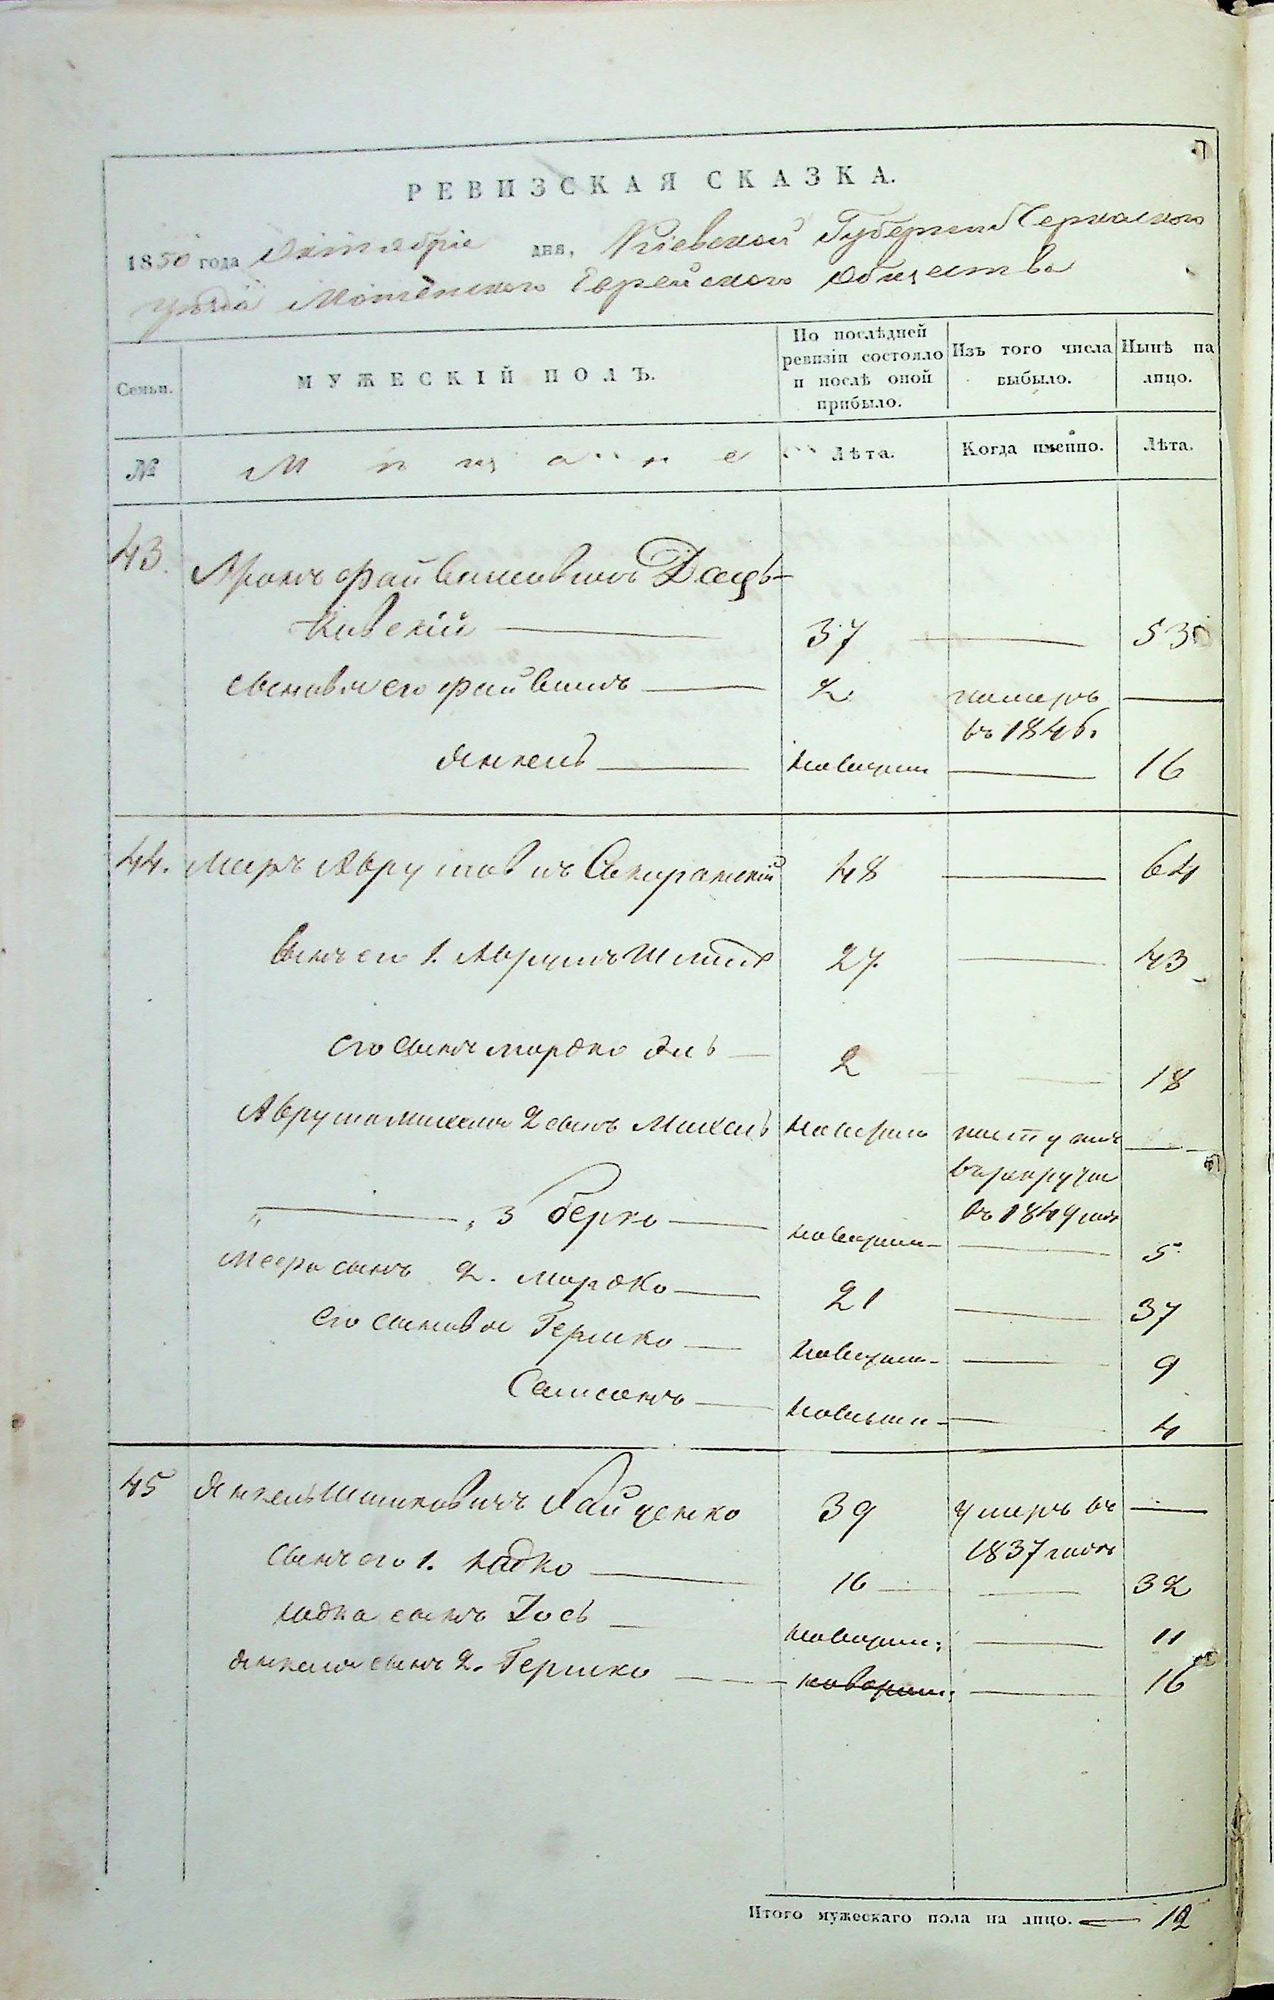 РЕВИЗСКАЯ СКАЗКА.
1850 года Октября дня, Кіевской Губерніи Черкаскаго
уѣзда Мошенскаго Еврейскаго общества
Семьи. МУЖЕСКІЙ ПОЛЪ. По послѣдней ревизіи состояло и послѣ оной прибыло. Изъ того числа выбыло. Нынѣ на лицо.
№ Мѣщане Лѣта. Когда именно. Лѣта.
43. Аронъ Файвишовичъ Дацъ-
ковскій 37 53
сыновья его Файвишъ 2 померъ
въ 1846.
Янкель новорож 16
44. Меръ Аврумовичъ 48 64
сынъ его 1. Аврумъ 27 43
его сынъ Мордко Эль 2 18
2 сынъ Михель новорож поступилъ
въ рекруты
въ 1849 годѣ
„ „ 3 Берко новорож 5
Меера сынъ 2. Мордко 21 37
его сыновья Гершко новорож 9
Самсонъ новорож 4
45 Янкель Шмиковичъ 39 умеръ въ
1837 годѣ
сынъ его 1. Юдко 16 32
Юдка сынъ Іось новорож: 11
Янкеля сынъ 2. Гершко новорож: 16
Итого мужескаго пола на лицо. 12